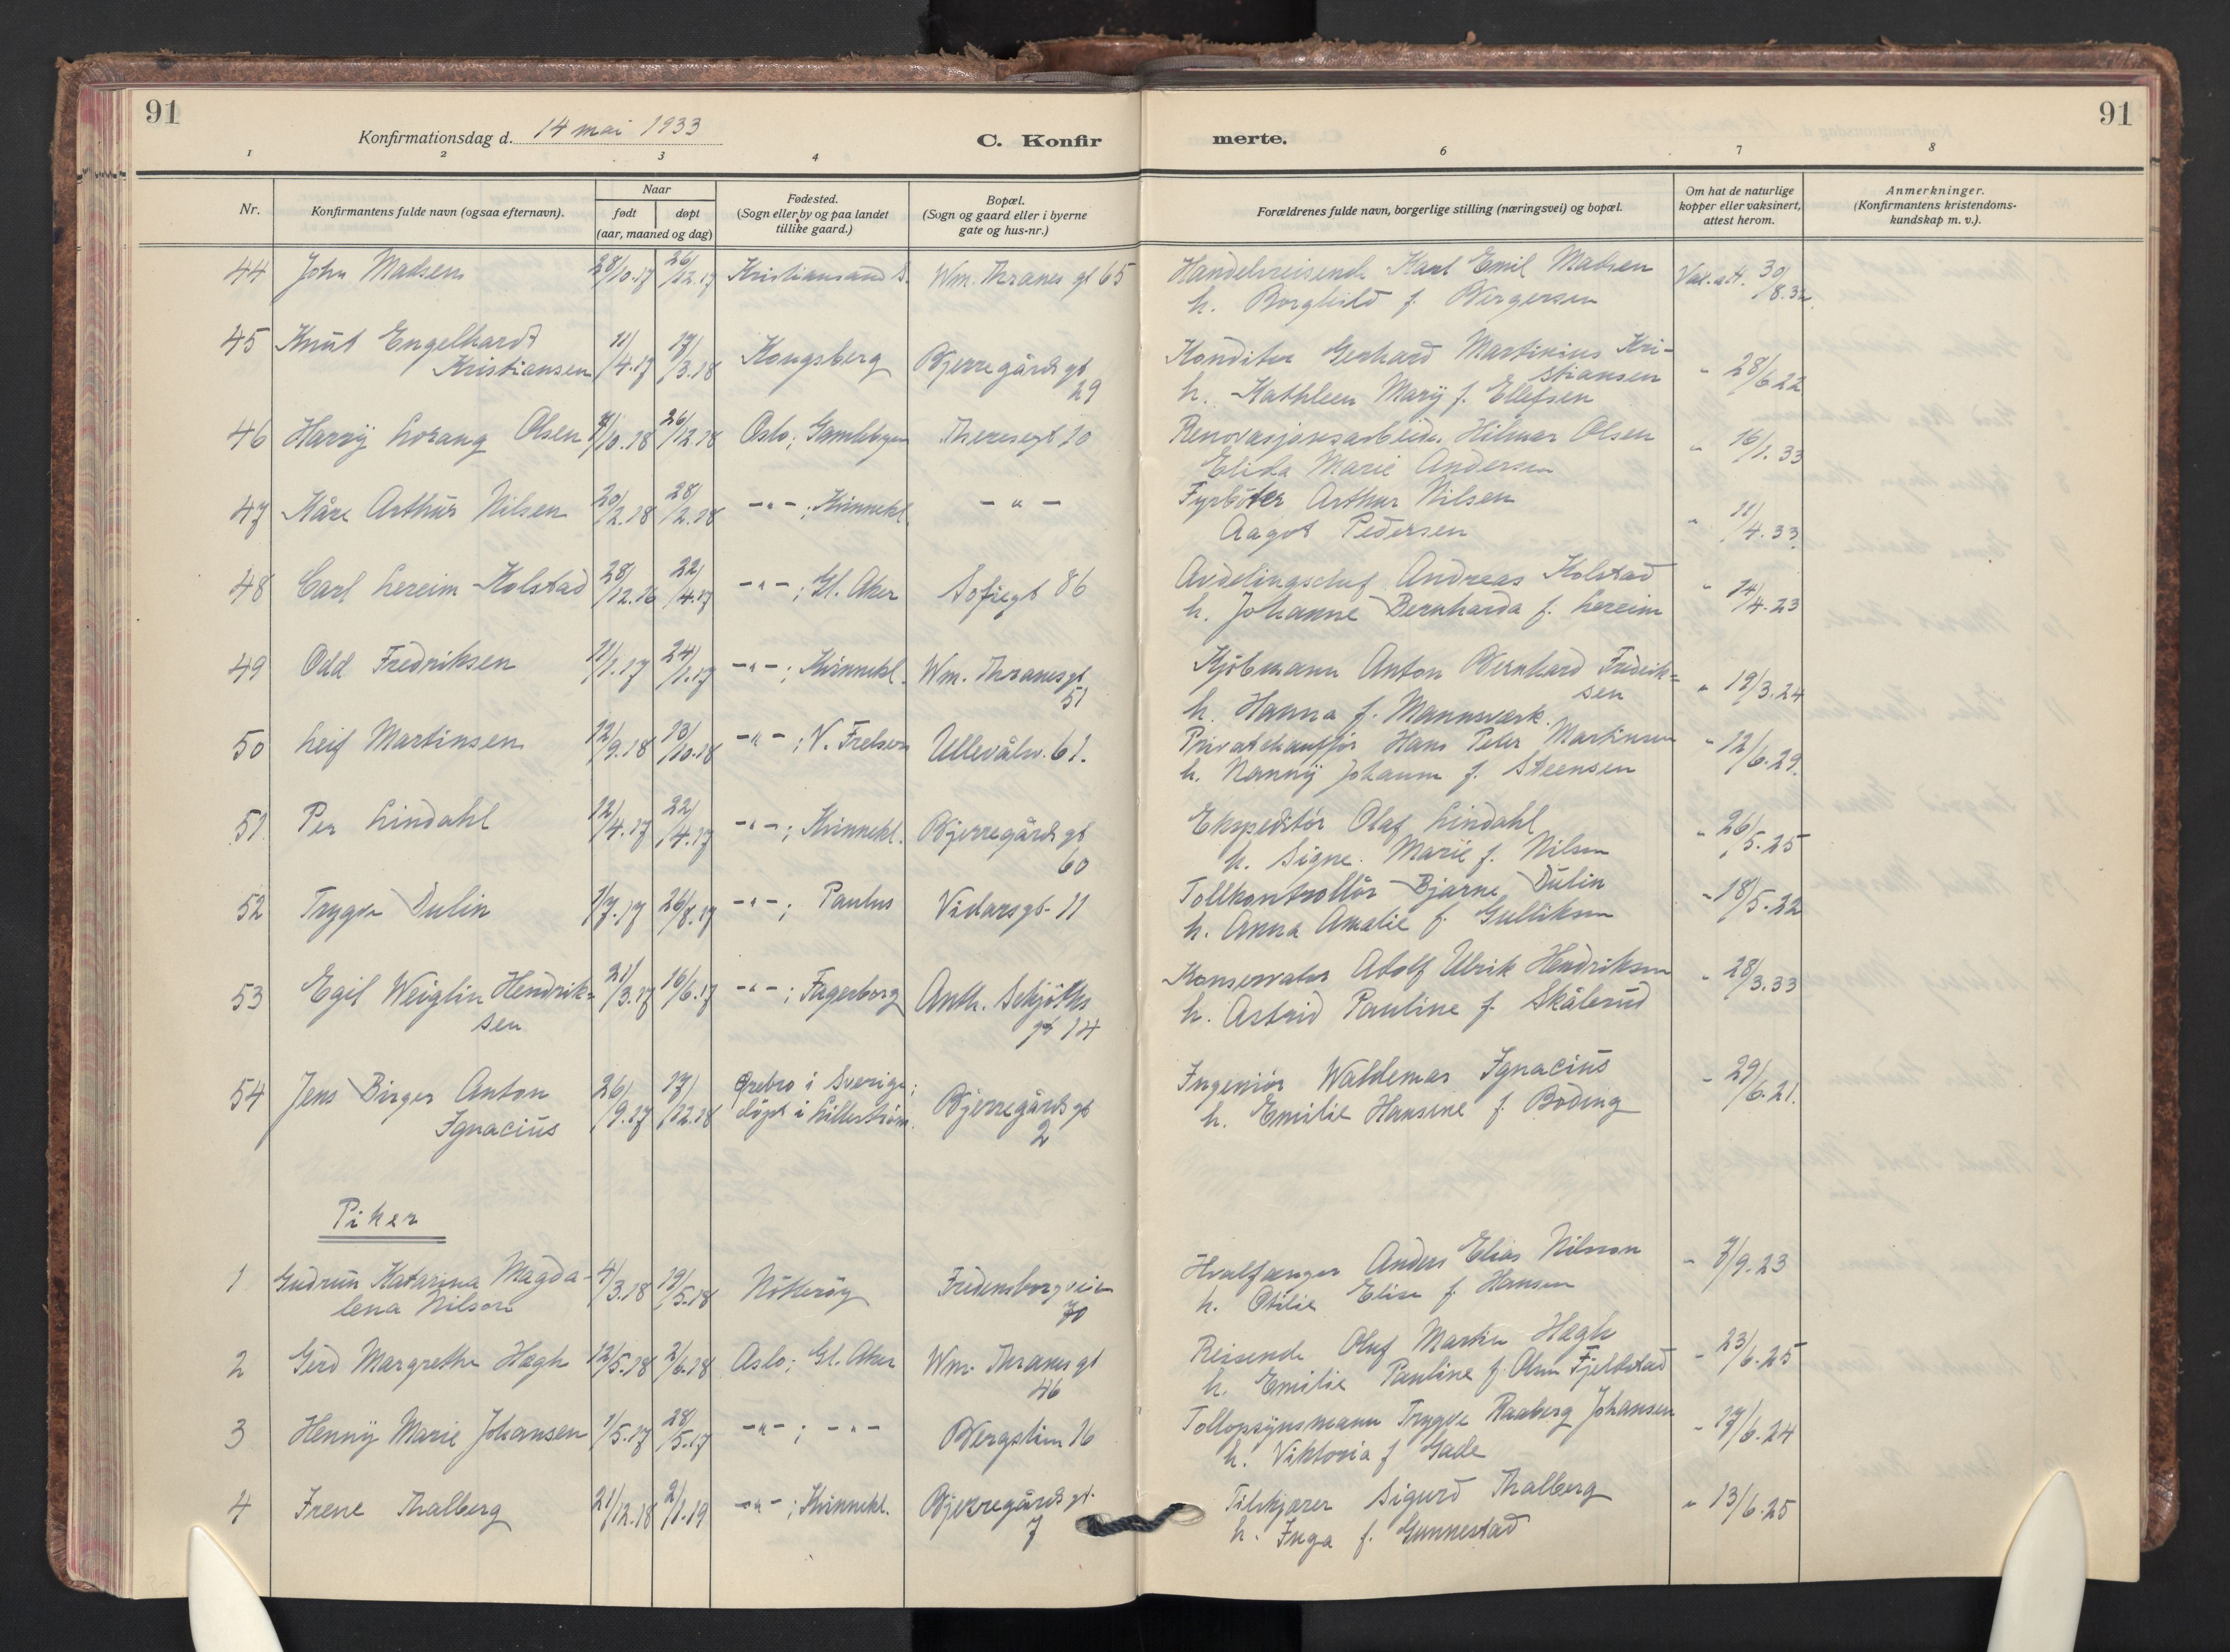 91
91
Konfirmationsdag d. 14 mai 1933
C. Konfir
merte.
1 2 3 4 6 7 8
Nr.
Konfirmantens fulde navn (ogsaa efternavn).
Naar
født
døpt
(aar, maaned og dag)
Fødested.
(Sogn eller by og paa landet
tillike gaard.)
Bopæl.
(Sogn og gaard eller i byerne
gate og hus-nr.)
Forældrenes fulde navn, borgerlige stilling (næringsvei) og bopæl.
Om hat de naturlige
kopper eller vaksinert,
attest herom.
Anmerkninger.
(Konfirmantens kristendoms-
kundskap m. v.).
44 John Madsen 28/10.17 26/12.17 Kristiansand S. Wm. Thranes gt 65 Handelsreisende Karl Emil Madsen Vak.att. 30/8.32.
h. Borghild f. Bergersen
45 Knut Engelhardt 11/4.17 17/3.18 Kongsberg Bjerregårds gt Konditor Gerhard Martinius Kri- " 28/6 22
Kristiansen 29 stiansen
h. Kathleen Mary f. Ellefsen
46 Harry Lorang Olsen /10.18 26/12.18 Oslo; Gamlebyen Theresegt 10 Renovasjonsarbeider Hilmar Olsen " 16/1.33
Elida Marie Andersen
47 Kåre Arthur Nilsen 20/2.18 28/2.18 -"-; Kvinnekl. - " - Fyrbøter Arthur Nilsen " 11/4.33.
Aagot Pedersen
48 Carl Lereim Kolstad 28/12.16 22/4.17 -"-; Gl. Aker Sofiegt 86 Avdelingschef Andreas Kolstad " 14/4.23
h. Johanne Bernharda f. Lereim
49 Odd Fredriksen 11/1.17 24/1.17 -"-; Kvinnekl. Wm. Thranesgt Kjøbmann Anton Bernhard Fredrik= " 19/3.24
51 sen
h. Hanna f. Mannsverk.
50 Leif Martinsen 12/9.18 10/10.18 -"-; V. Frelsers Ullevålsv. 61. Privatchauffør Hans Peter Martinsen " 12/6.29.
h. Nanny Johanne f. Steensen
51 Per Lindahl 12/4.17 22/4.17 -"-; Kvinnekl. Bjerregårds gt Ekspeditør Olaf Lindahl " 26/5.25
60 h. Signe Marie f. Nilsen
52 Trygve Dulin 1/7.17 26/8.17 -"-; Paulus Vidarsgt. 11 Tollkontrollør Bjarne Dulin " 18/5.22
h. Anna Amalie f. Gulliksen
53 Egil Weiglin Hendrik= 21/3.17 16/6.17 -"-; Fagerborg Anth. Schjøths Konservator Adolf Ulrik Hendriksen " 28/3.33
sen gt 14 h. Astrid Pauline f. Skålerud
54 Jens Birger Anton 26/9.17 17/12.18 Ørebro i Sverige; Bjerregårds gt Ingeniør Waldemar Ignacius " 29/6.21.
Ignacius døpt i Lillestrøm. 2 h. Emilie Hansine f. Bøding
Piker
1 Gudrun Katarina Magda- 4/3.18 19/5.18 Nøtterøy Fredensborgveien Hvalfanger Anders Elias Nilsson " 7/9.23
lena Nilson 70 h. Otilie Elise f. Hansen
2 Gerd Margrethe Hagh 12/5.18 2/6.18 Oslo; Gl. Aker Wm. Thranes gt Reisende Oluf Martin Hagh " 23/6.25
46 h. Emilie Pauline f. Olsen Fjeldstad
3 Henny Marie Johansen 1/5.17 28/5.17 -"-; -"- Bergslien 16 Tollopsynsmann Trygve Raaberg Johansen " 17/6.24
h. Viktoria f Gade
4 Irene Thalberg 21/12.18 2/1.19 -"-; Kvinnekl. Bjerregårds gt. Tilskjærer Sigurd Thalberg " 13/6.25
7 h. Inga f. Gunnestad